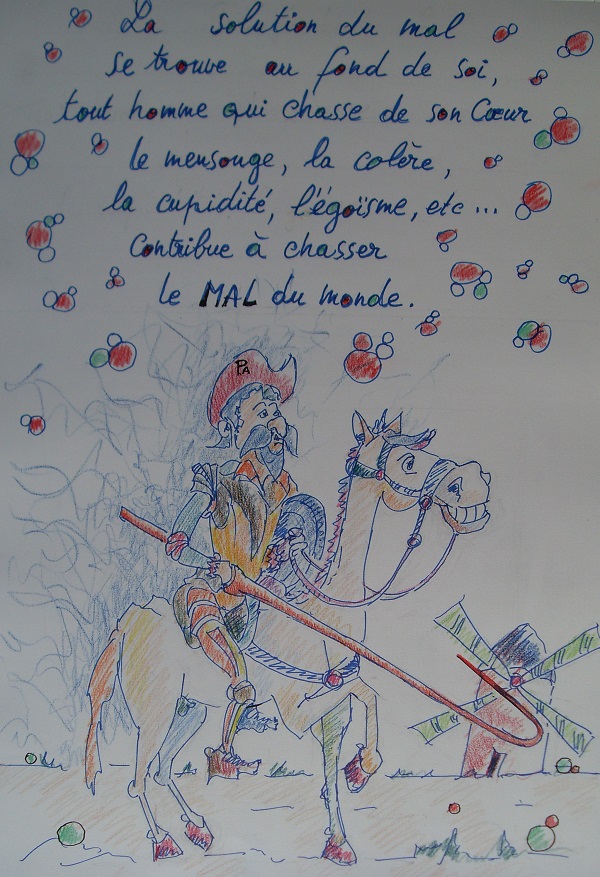 La solution du mal
se trouve au fond de soi,
tout homme qui chasse de son Cœur
le mensouge, la colère,
la cupidité, l'égoïsme, etc...
Contribue à chasser
le MAL du monde.
PA